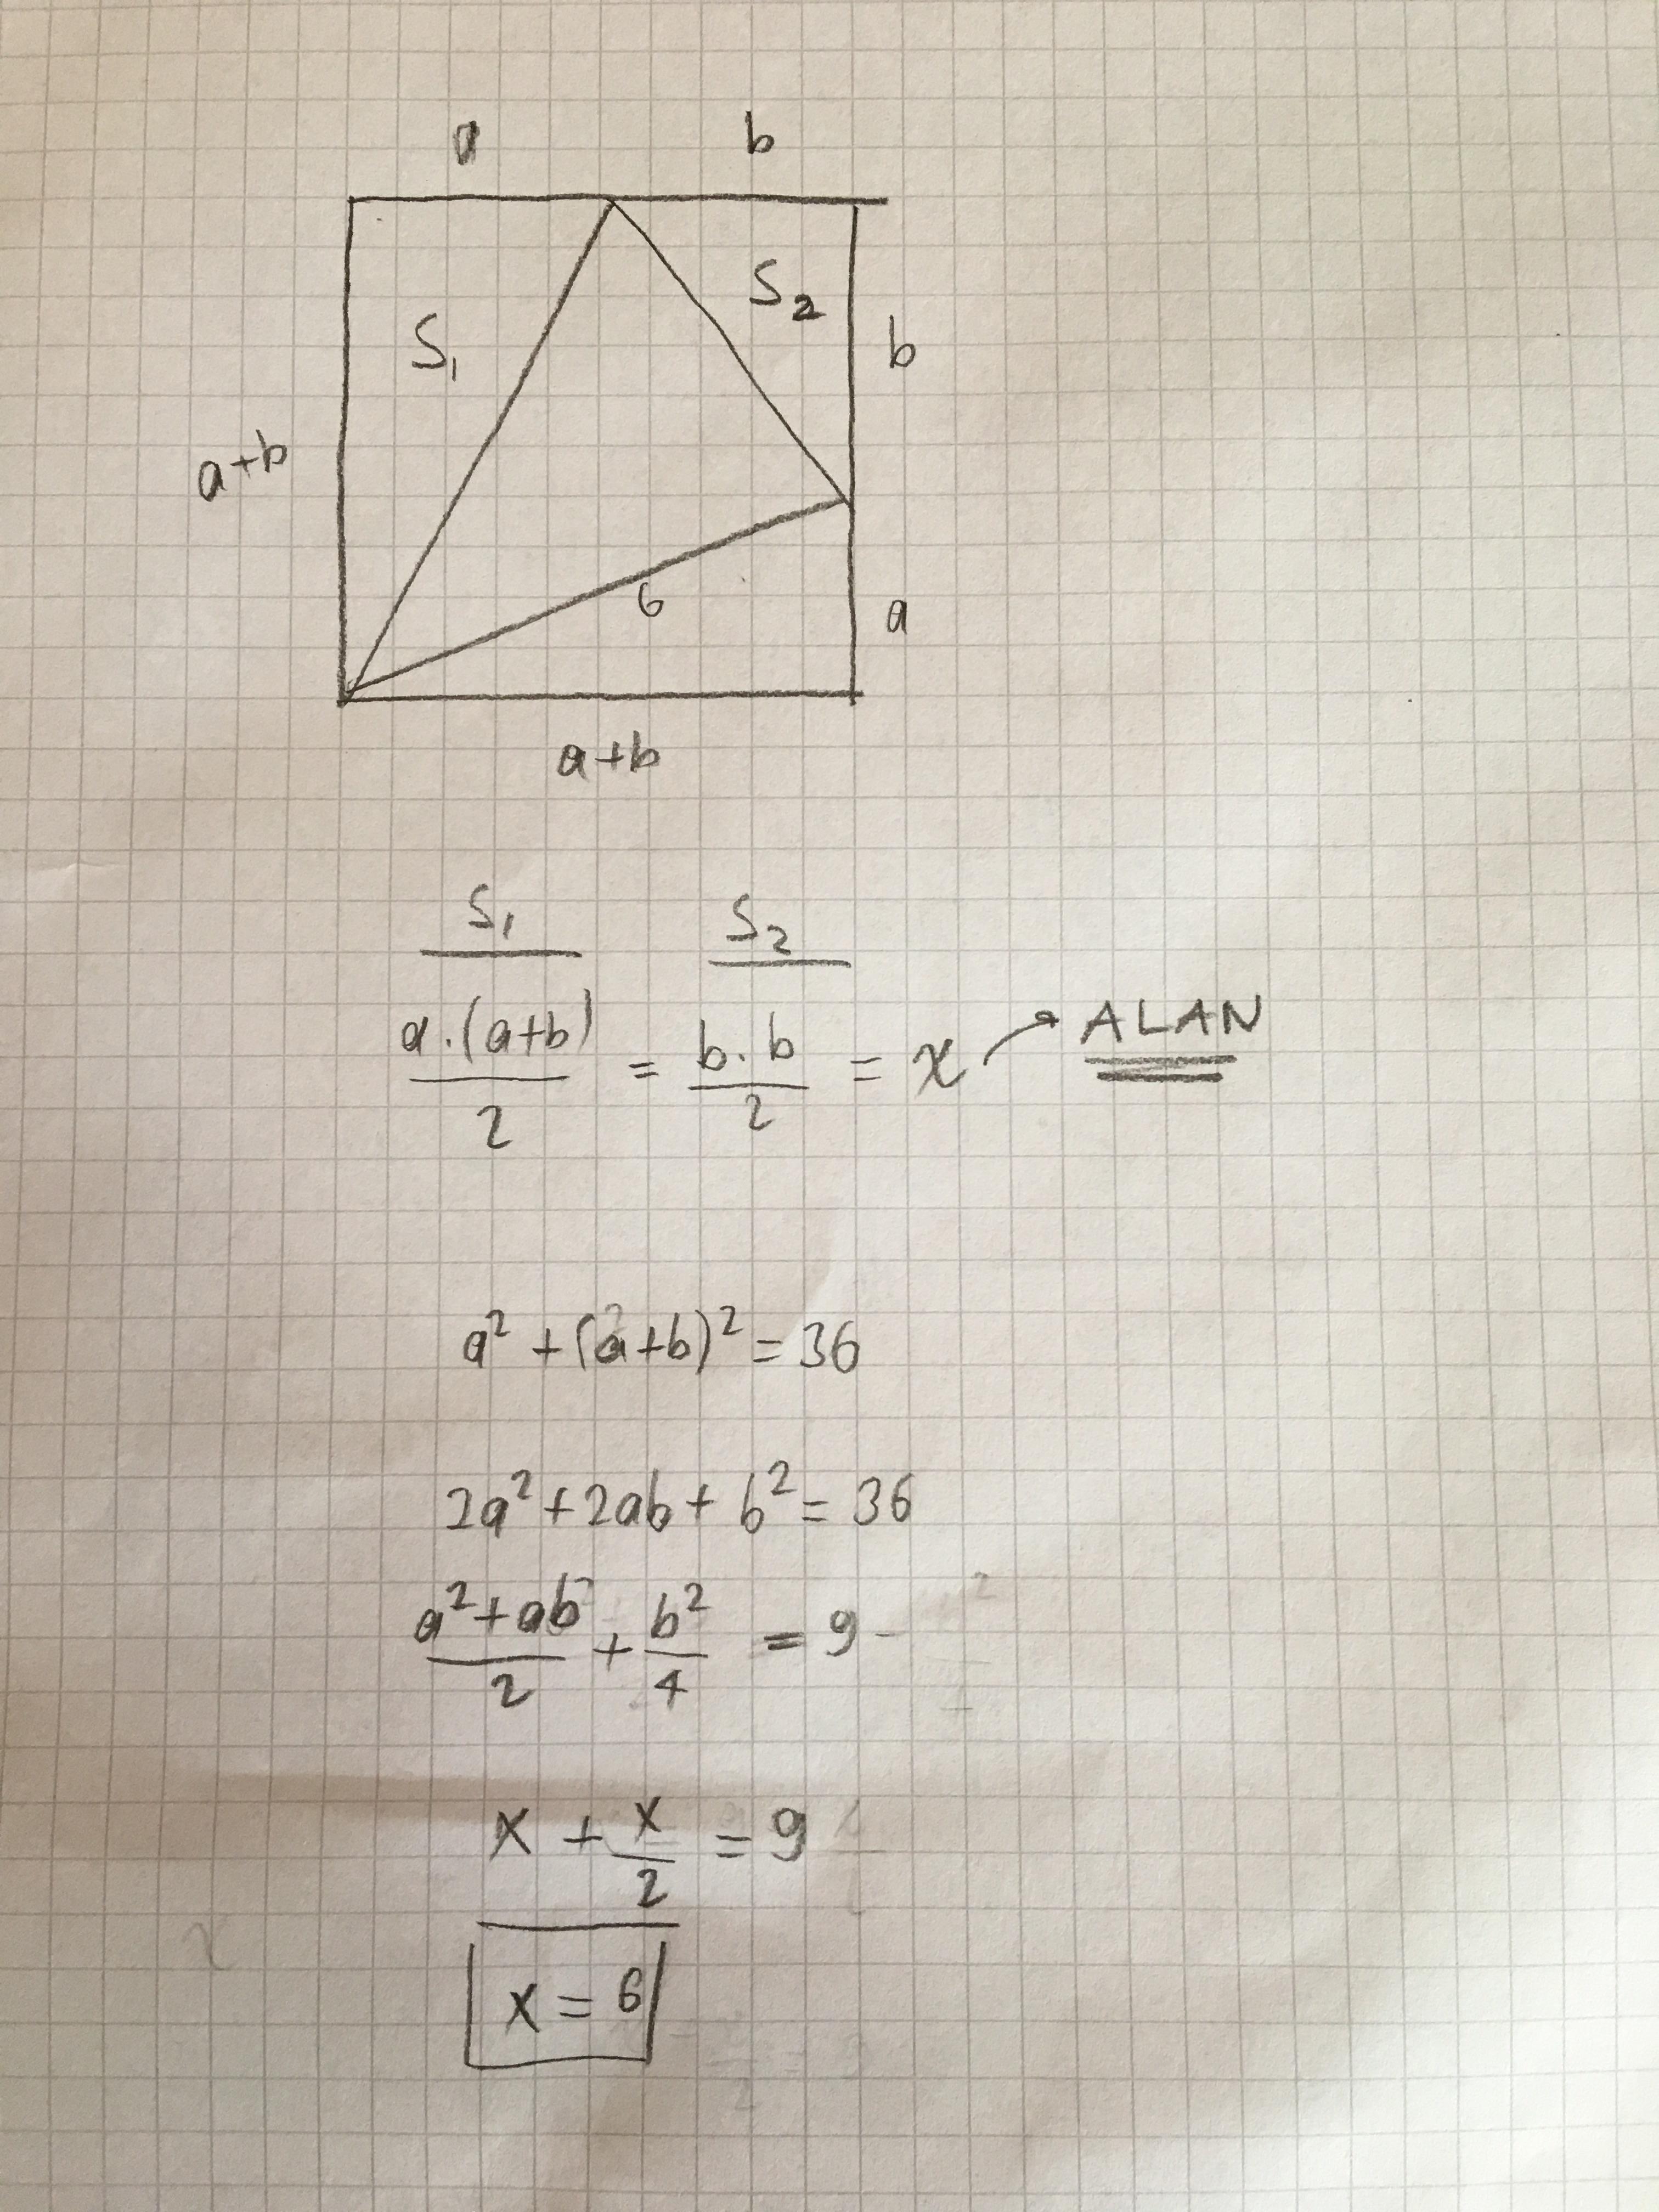 a b
S₁ S₂
a+b b
6 a
a+b
S₁ S₂
a.(a+b)/2 = b.b/2 = x → ALAN
a² + (a+b)² = 36
2a² + 2ab + b² = 36
(a²+ab)/2 + b²/4 = 9
x + x/2 = 9
x = 6